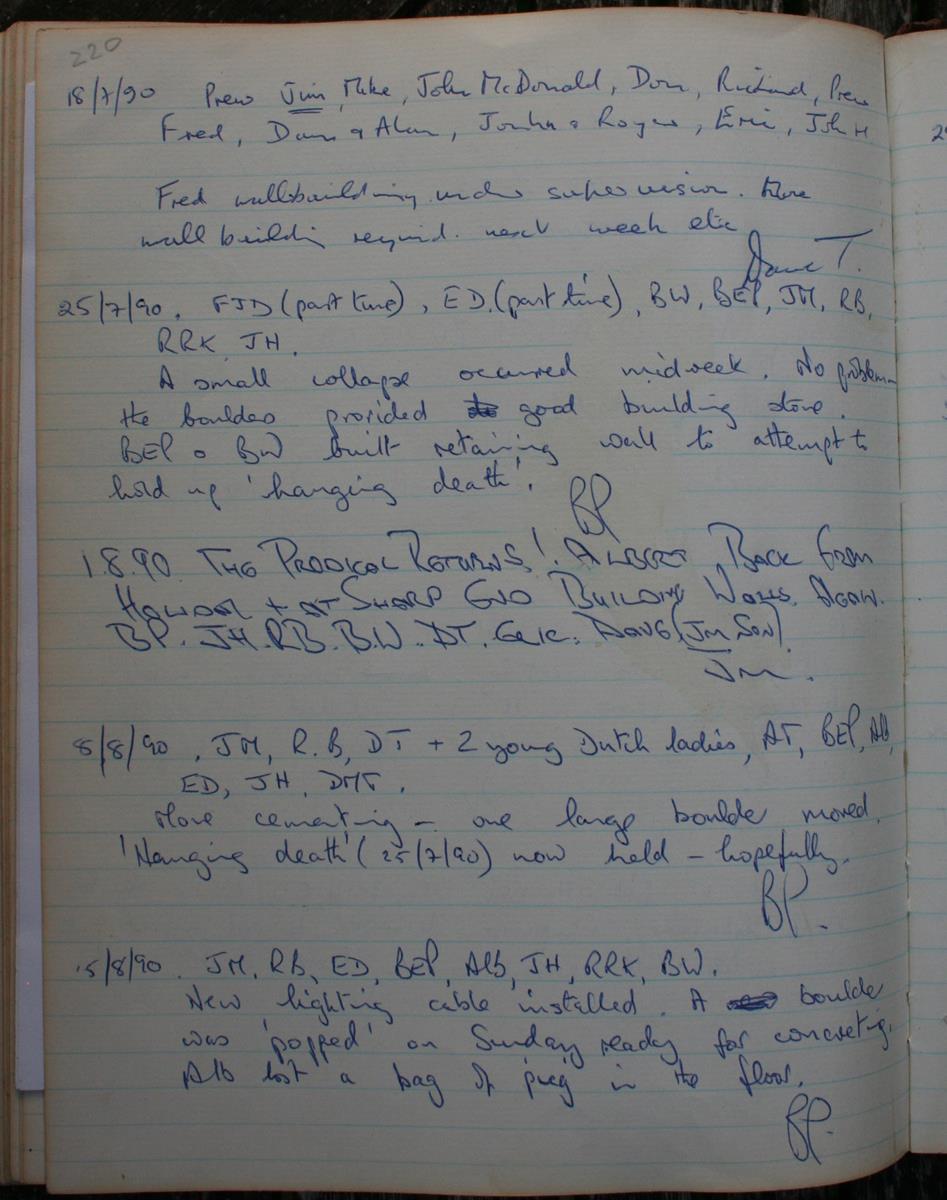 220
18/7/90 Prew Jim, Mike, John McDonald, Don, Richard, Prew
Fred, Dave & Alan, Jonha & Roger, Eric, John H
Fred wallbuilding under supervision. More
wall building required. next week etc
Dave T.
25/7/90. FJD (part time), ED. (part time), BW, BEP, JM, RB,
RRK, JH.
A small collapse occurred midweek. No problem
the boulders provided good building stone.
BEP & BW built retaining wall to attempt to
hold up 'hanging death'.
BP
1.8.90. THE PRODIGAL RETURNS! ALBERT BACK FROM
+ AT SHARP END BUILDING WALLS AGAIN.
BP. JH. RB. B.W. DT. ERIC. DOUG (JM SON).
JM.
8/8/90, JM, R.B, DT + 2 young Dutch ladies, AT, BEP, Alb,
ED, JH, DMT.
More cementing - one large boulder moved.
'Hanging death' (25/7/90) now held - hopefully.
BP.
15/8/90. JM, RB, ED, BEP, Alb, JH, RRK, BW.
New lighting cable installed. A boulder
was 'popped' on Sunday ready for concreting.
Alb lost a bag of in the floor.
BP.
2